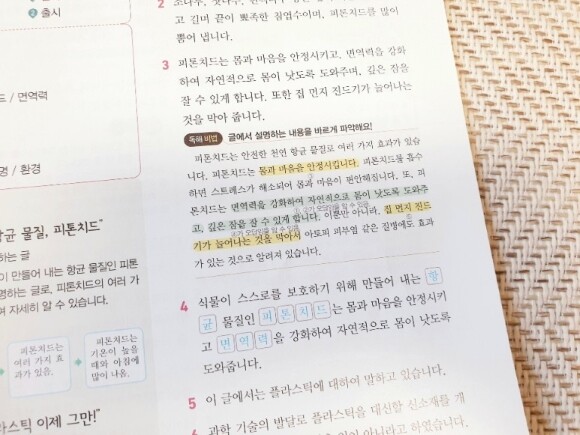 ② 출시
드 / 면역력
명 / 환경
항균 물질, 피톤치드"
하는 글
이 만들어 내는 항균 물질인 피톤
명하는 글로, 피톤치드의 여러 가
여 자세히 알 수 있습니다.
피톤치드는
여러 가지 효
과가 있음.
피톤치드는
기온이 높을
때와 아침에
많이 나옴.
라스틱 이제 그만!"
2
고 길며 끝이 뾰족한 침엽수이며, 피톤치드를 많이
뿜어 냅니다.
3 피톤치드는 몸과 마음을 안정시키고, 면역력을 강화
하여 자연적으로 몸이 낫도록 도와주며, 깊은 잠을
잘 수 있게 합니다. 또한 집 먼지 진드기가 늘어나는
것을 막아 줍니다.
독해 비법 글에서 설명하는 내용을 바르게 파악해요!
피톤치드는 안전한 천연 항균 물질로 여러 가지 효과가 있습
니다. 피톤치드는 몸과 마음을 안정시킵니다. 피톤치드를 흡수
하면 스트레스가 해소되어 몸과 마음이 편안해집니다. 또, 피
톤치드는 면역력을 강화하여 자연적으로 몸이 낫도록 도와주
고, 깊은 잠을 잘 수 있게 합니다. 이뿐만 아니라, 집 먼지 진드
기가 늘어나는 것을 막아서 아토피 피부염 같은 질병에도 효과
가 있는 것으로 알려져 있습니다.
4 식물이 스스로를 보호하기 위해 만들어 내는 항
균 물질인 피톤치드는 몸과 마음을 안정시키
고 면역력을 강화하여 자연적으로 몸이 낫도록
도와줍니다.
5 이 글에서는 플라스틱에 대하여 말하고 있습니다.
6 과학 기술의 발달로 플라스틱을 대신할 신소재를 개